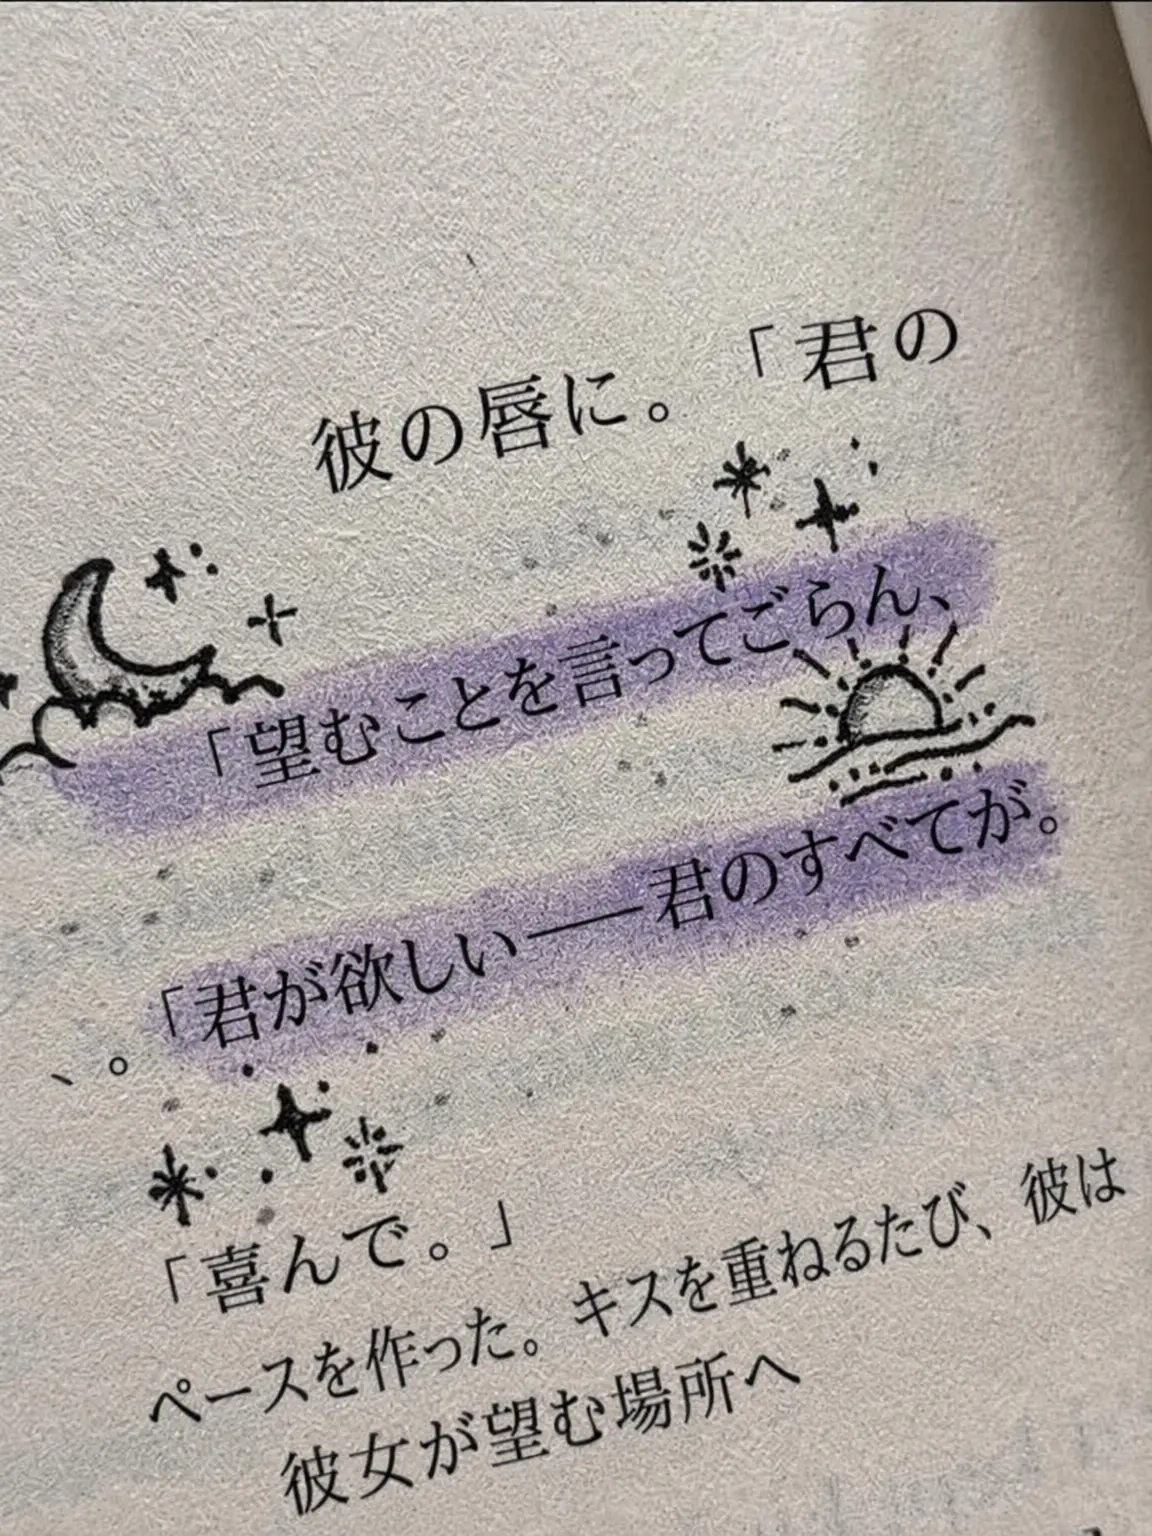 彼の唇に。「君の
「望むことを言ってごらん、
「君が欲しい——君のすべてが。
、。
「喜んで。」
キスを重ねるたび、彼は
ペースを作った。
彼女が望む場所へ